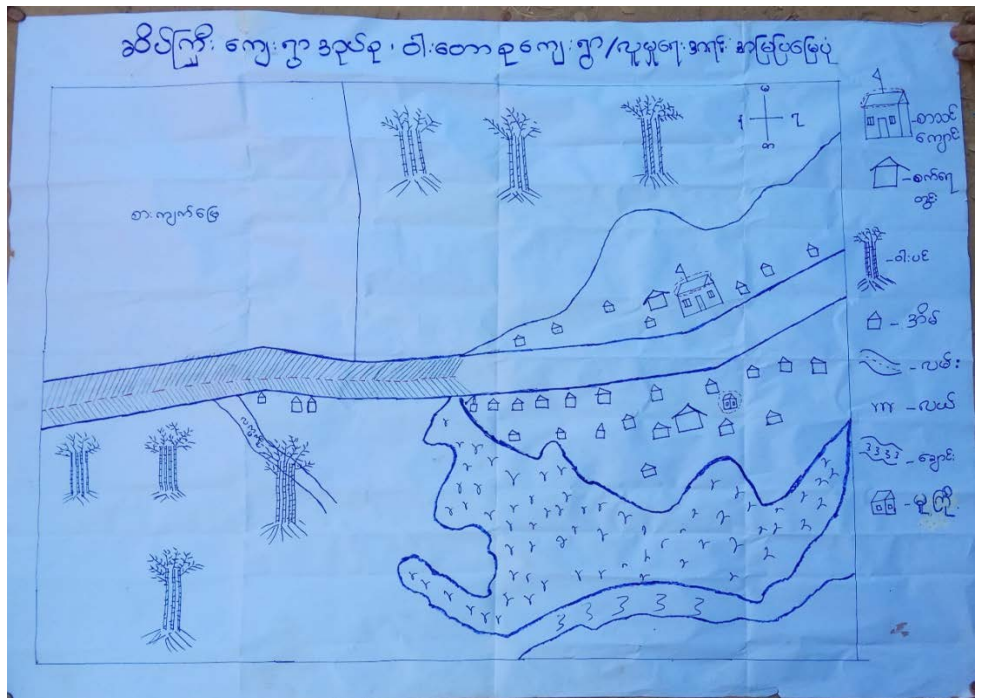 ခပိပ်ကြီး ကျေးရွာ အုပ်စု ၊ ဝါးတောစုကျေးရွာ/လူမှုရေးအရင်းအမြစ်ပြမြေပုံ
စားကျက်မြေ
မ
၅
တ
စာသင်
ကျောင်း
စက်ရေ
တွင်း
ဝါးပင်
အိမ်
လမ်း
လယ်
ချောင်း
မူကြို